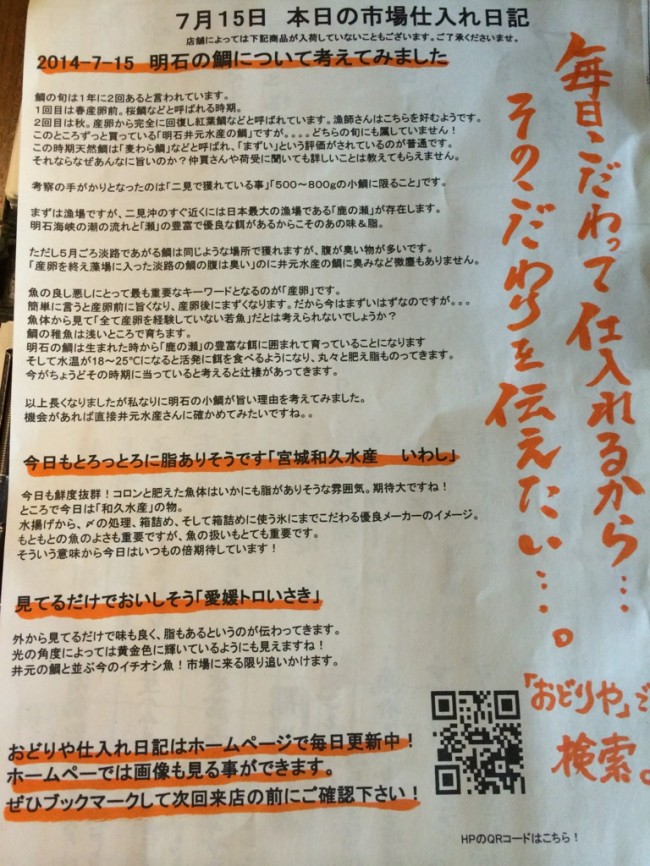 7月15日 本日の市場仕入れ日記
店舗によっては下記商品が入荷していないこともございます。ご了承くださいませ。
2014-7-15 明石の鯛について考えてみました
鯛の旬は1年に2回あると言われています。
1回目は春産卵前。桜鯛などと呼ばれる時期。
2回目は秋。産卵から完全に回復し紅葉鯛などと呼ばれています。漁師さんはこちらを好むようです。
このところずっと買っている「明石井元水産の鯛」ですが。。。。どちらの旬にも属していません！
この時期天然鯛は「麦わら鯛」などと呼ばれ、「まずい」という評価がされているのが普通です。
それならなぜあんなに旨いのか？仲買さんや荷受に聞いても詳しいことは教えてもらえません。
考察の手がかりとなったのは「二見で獲れている事」「500～800gの小鯛に限ること」です。
まずは漁場ですが、二見沖のすぐ近くには日本最大の漁場である「鹿の瀬」が存在します。
明石海峡の潮の流れと「瀬」の豊富で優良な餌があるからこそのあの味＆脂。
ただし5月ごろ淡路であがる鯛は同じような場所で獲れますが、腹が臭い物が多いです。
「産卵を終え藻場に入った淡路の鯛の腹は臭い」のに井元水産の鯛に臭みなど微塵もありません。
魚の良し悪しにとって最も重要なキーワードとなるのが「産卵」です。
簡単に言うと産卵前に旨くなり、産卵後にまずくなります。だから今はまずいはずなのですが。。。
魚体から見て「全て産卵を経験していない若魚」だとは考えられないでしょうか？
鯛の稚魚は浅いところで育ちます。
明石の鯛は生まれた時から「鹿の瀬」の豊富な餌に囲まれて育っていることになります
そして水温が18～25℃になると活発に餌を食べるようになり、丸々と肥え脂ものってきます。
今がちょうどその時期に当っていると考えると辻褄があってきます。
以上長くなりましたが私なりに明石の小鯛が旨い理由を考えてみました。
機会があれば直接井元水産さんに確かめてみたいですね。。
今日もとろっとろに脂ありそうです「宮城和久水産 いわし」
今日も鮮度抜群！コロンと肥えた魚体はいかにも脂がありそうな雰囲気。期待大ですね！
ところで今日は「和久水産」の物。
水揚げから、〆の処理、箱詰め、そして箱詰めに使う氷にまでこだわる優良メーカーのイメージ。
もともとの魚のよさも重要ですが、魚の扱いもとても重要です。
そういう意味から今日はいつもの倍期待しています！
見てるだけでおいしそう「愛媛トロいさき」
外から見てるだけで味も良く、脂もあるというのが伝わってきます。
光の角度によっては黄金色に輝いているようにも見えますね！
井元の鯛と並ぶ今のイチオシ魚！市場に来る限り追いかけます。
おどりや仕入れ日記はホームページで毎日更新中！
ホームペーでは画像も見る事ができます。
ぜひブックマークして次回来店の前にご確認下さい！
毎日こだわって仕入れるから…
そのこだわりを伝えたい…。
「おどりや」で
検索。
HPのQRコードはこちら！